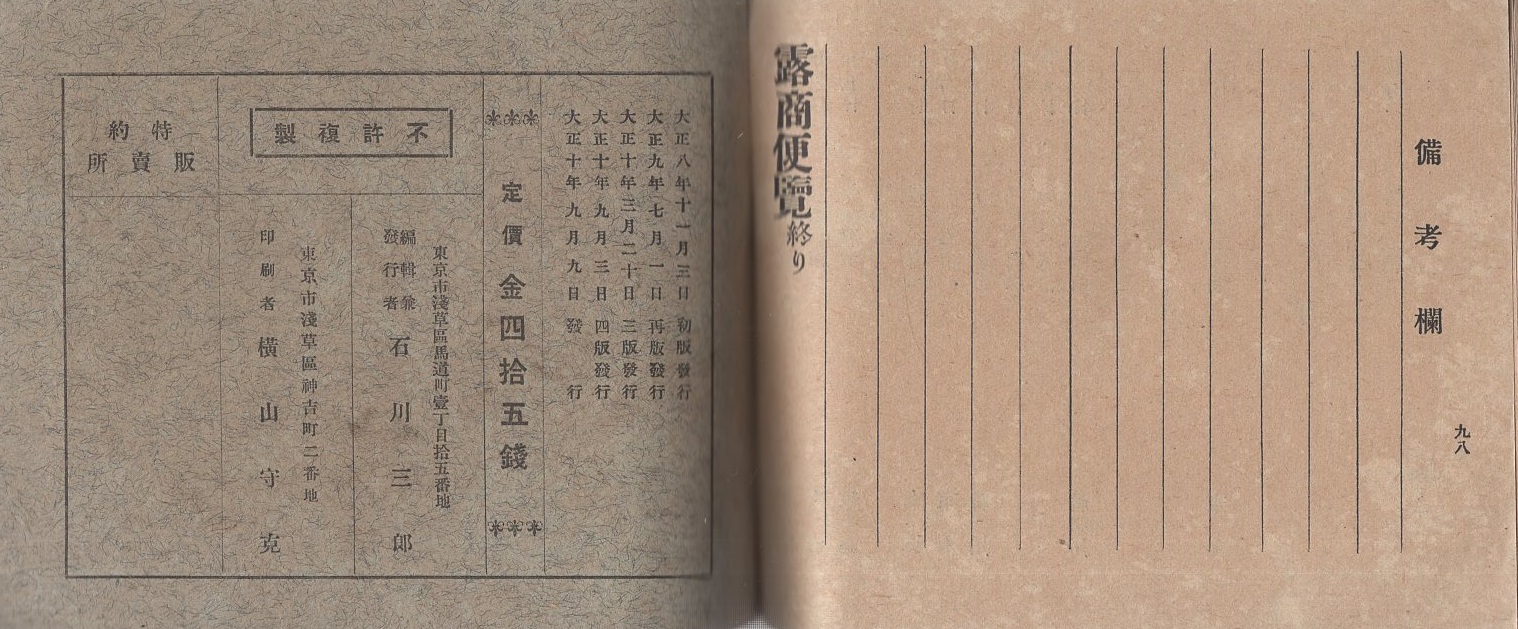 備考欄
九八
露商便覽終り
大正八年十一月三日初版發行
大正九年七月一日再版發行
大正十年三月二十日三版發行
大正十年九月三日四版發行
大正十年九月九日發行
定價金四拾五錢
不許複製
東京市淺草區馬道町壹丁目拾五番地
編輯兼
發行者
石川三郎
東京市淺草區神吉町二番地
印刷者橫山守克
特約
販賣所